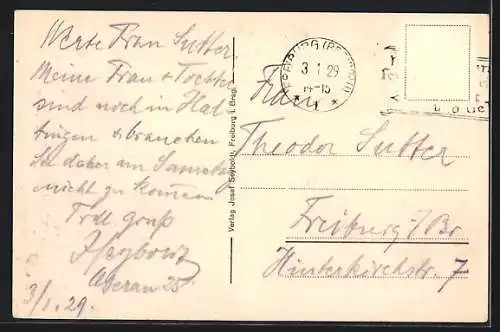 Werte Frau Sutter,
Meine Frau & Tochter
sind noch in Hal-
tingen & brauchen
Sie daher am Samstag
nicht zu kommen
Frdl gruß
Oberau 25
3/1. 29.
Verlag Josef Seybold, Freiburg i. Brsg.
3 1 29
14-15
Frau
Theodor Sutter
Freiburg i/Br
Hinterkirchstr. 7